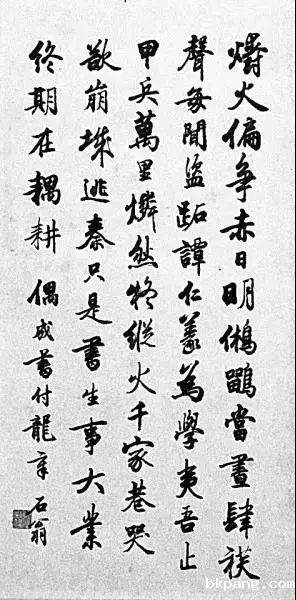 爝火偏爭赤日明鵂鶹當晝肆祅
聲每聞盜跖譚仁義為學夷吾止
甲兵萬里燐然矜縱火千家巷哭
欲崩城逃秦只是書生事大業
終期在耦耕 偶成書付龍章 石翁
bkpang.com